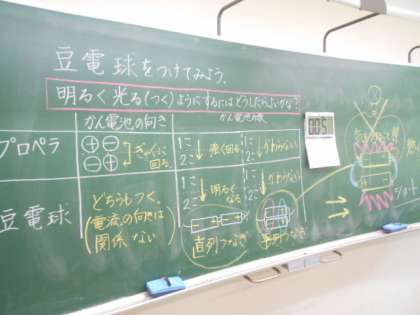 豆電球をつけてみよう。
明るく光る(つく)ようにするにはどうしたらよいかな?
かん電池の向き
かん電池の数
005
プロペラ
+ -
- +
ぎゃくに回る
1こ
2こ
強く回る
1こ
2こ
かわらない
豆電球
どちらもつく。
(電流の向きは
関係ない)
1こ
2こ
明るくなる
1こ
2こ
かわらない
直列つなぎ
並列つなぎ
ショート